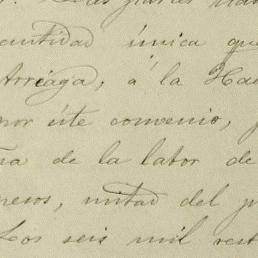 cantidad única que
Arriaga, á la Ha
por éste convenio,
de la labor de
pesos, mitad del p
Los seis mil rest